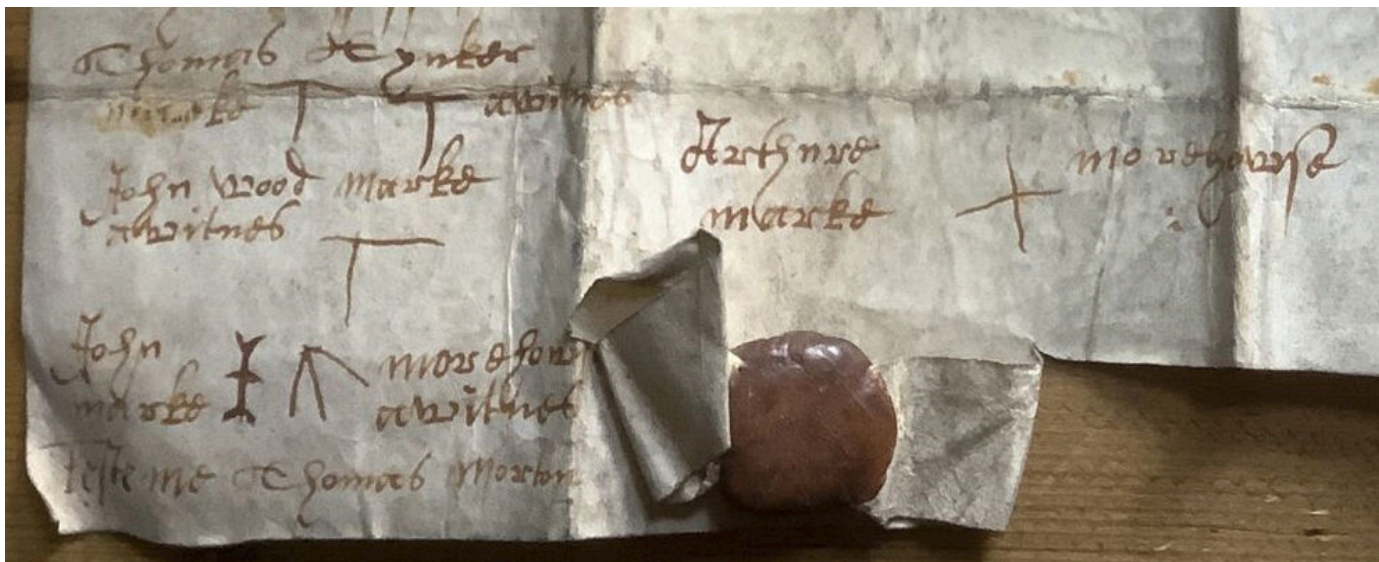 Thomas Tynker
marke T T a witnes
John Wood marke
a witnes T
Arthure morehowse
marke
John morehow
marke a witnes
Teste me Thomas Morton